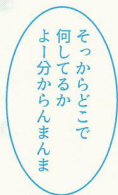 そっからどこで
何してるか
よー分からんまんま